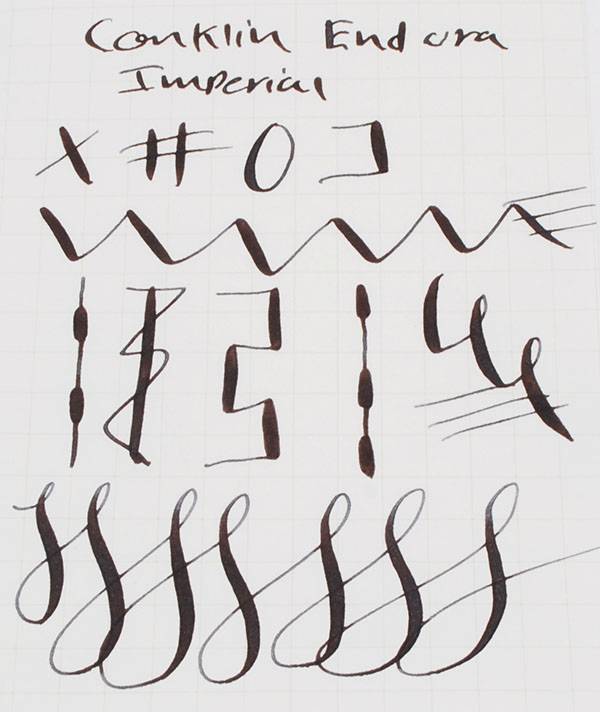 Conklin Endura
Imperial